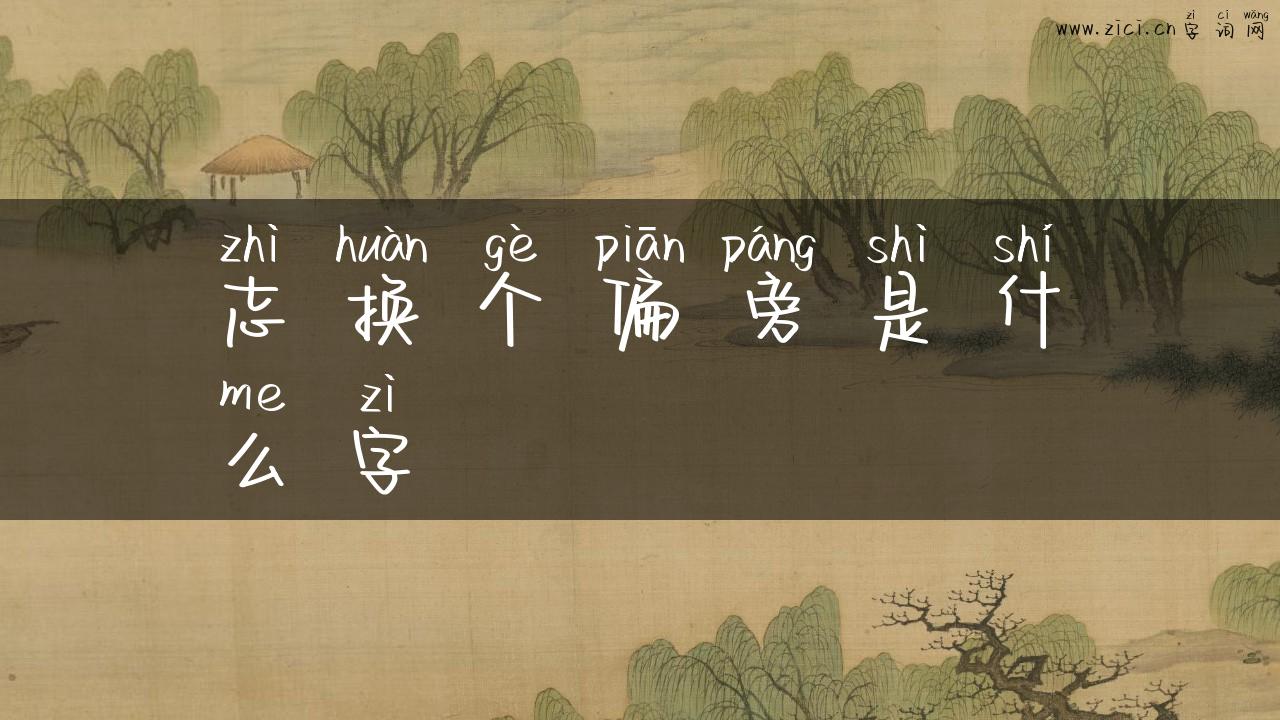 zì cí wǎng
www.zici.cn 字 词 网
zhì huàn gè piān páng shì shí
志 换 个 偏 旁 是 什
me zì
么 字